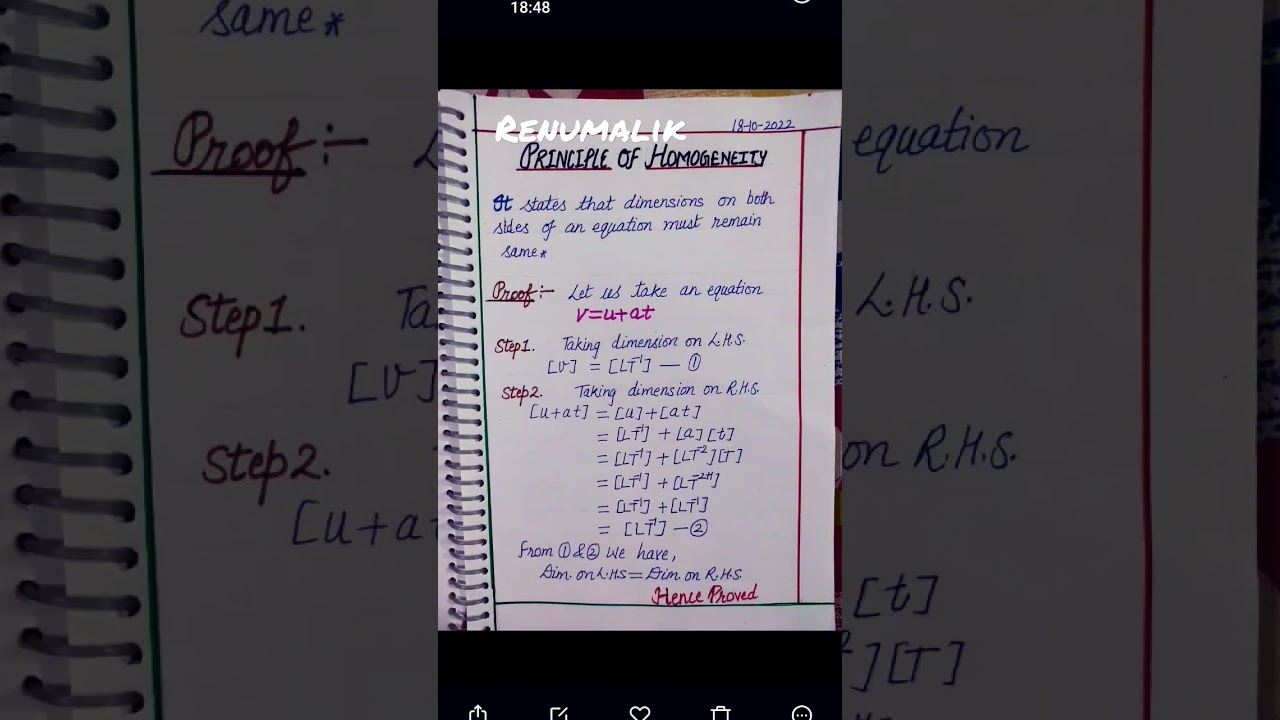 18:48
RENUMALIK
18-10-2022
PRINCIPLE OF HOMOGENEITY
It states that dimensions on both
sides of an equation must remain
same*
Proof:- Let us take an equation
v=u+at
Step1. Taking dimension on L.H.S.
[v] = [LT⁻¹] — ①
Step2. Taking dimension on R.H.S.
[u+at] = [u]+[at]
= [LT⁻¹] + [a][t]
= [LT⁻¹] + [LT⁻²][T]
= [LT⁻¹] + [LT⁻²⁺¹]
= [LT⁻¹] + [LT⁻¹]
= [LT⁻¹] — ②
From ① & ② We have,
Dim. on L.H.S = Dim. on R.H.S.
Hence Proved
same*
Proof:- L equation
Step1. Ta L.H.S.
[v]
Step2. on R.H.S.
[u+at
[t]
²][T]